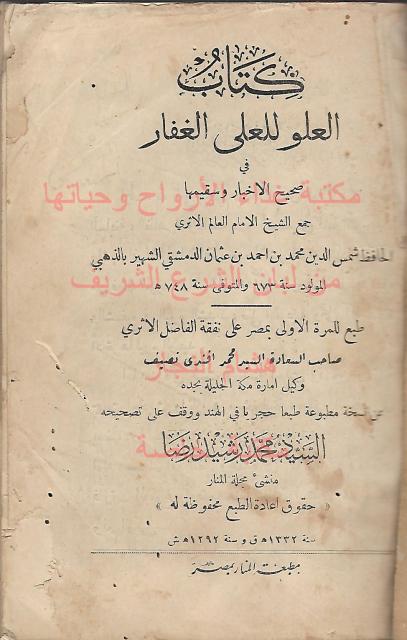 كتاب
العلو للعلى الغفار
في
صحيح الاخبار وسقيمها
مكتبة غذاء الأرواح وحياتها
جمع الشيخ الامام العالم الاثري
الحافظ شمس الدين محمد بن احمد بن عثمان الدمشقي الشهير بالذهبي
من لبان الشرع الشريف
المولود سنة ٦٧٣ والمتوفى سنة ٧٤٨ ه
طبع للمرة الاولى بمصر على نفقة الفاضل الاثري
صاحب السعادة السيد محمد افندى نصيف
هشام النجار
وكيل امارة مكة الجليلة بجده
عن نسخة مطبوعة طبعا حجريا في الهند ووقف على تصحيحه
السيد محمد رشيد رضا
منشئ مجلة المنار
« حقوق اعادة الطبع محفوظة له »
سنة ١٣٣٢ ه ق و سنة ١٢٩٢ ه ش
مطبعة المنار بمصر